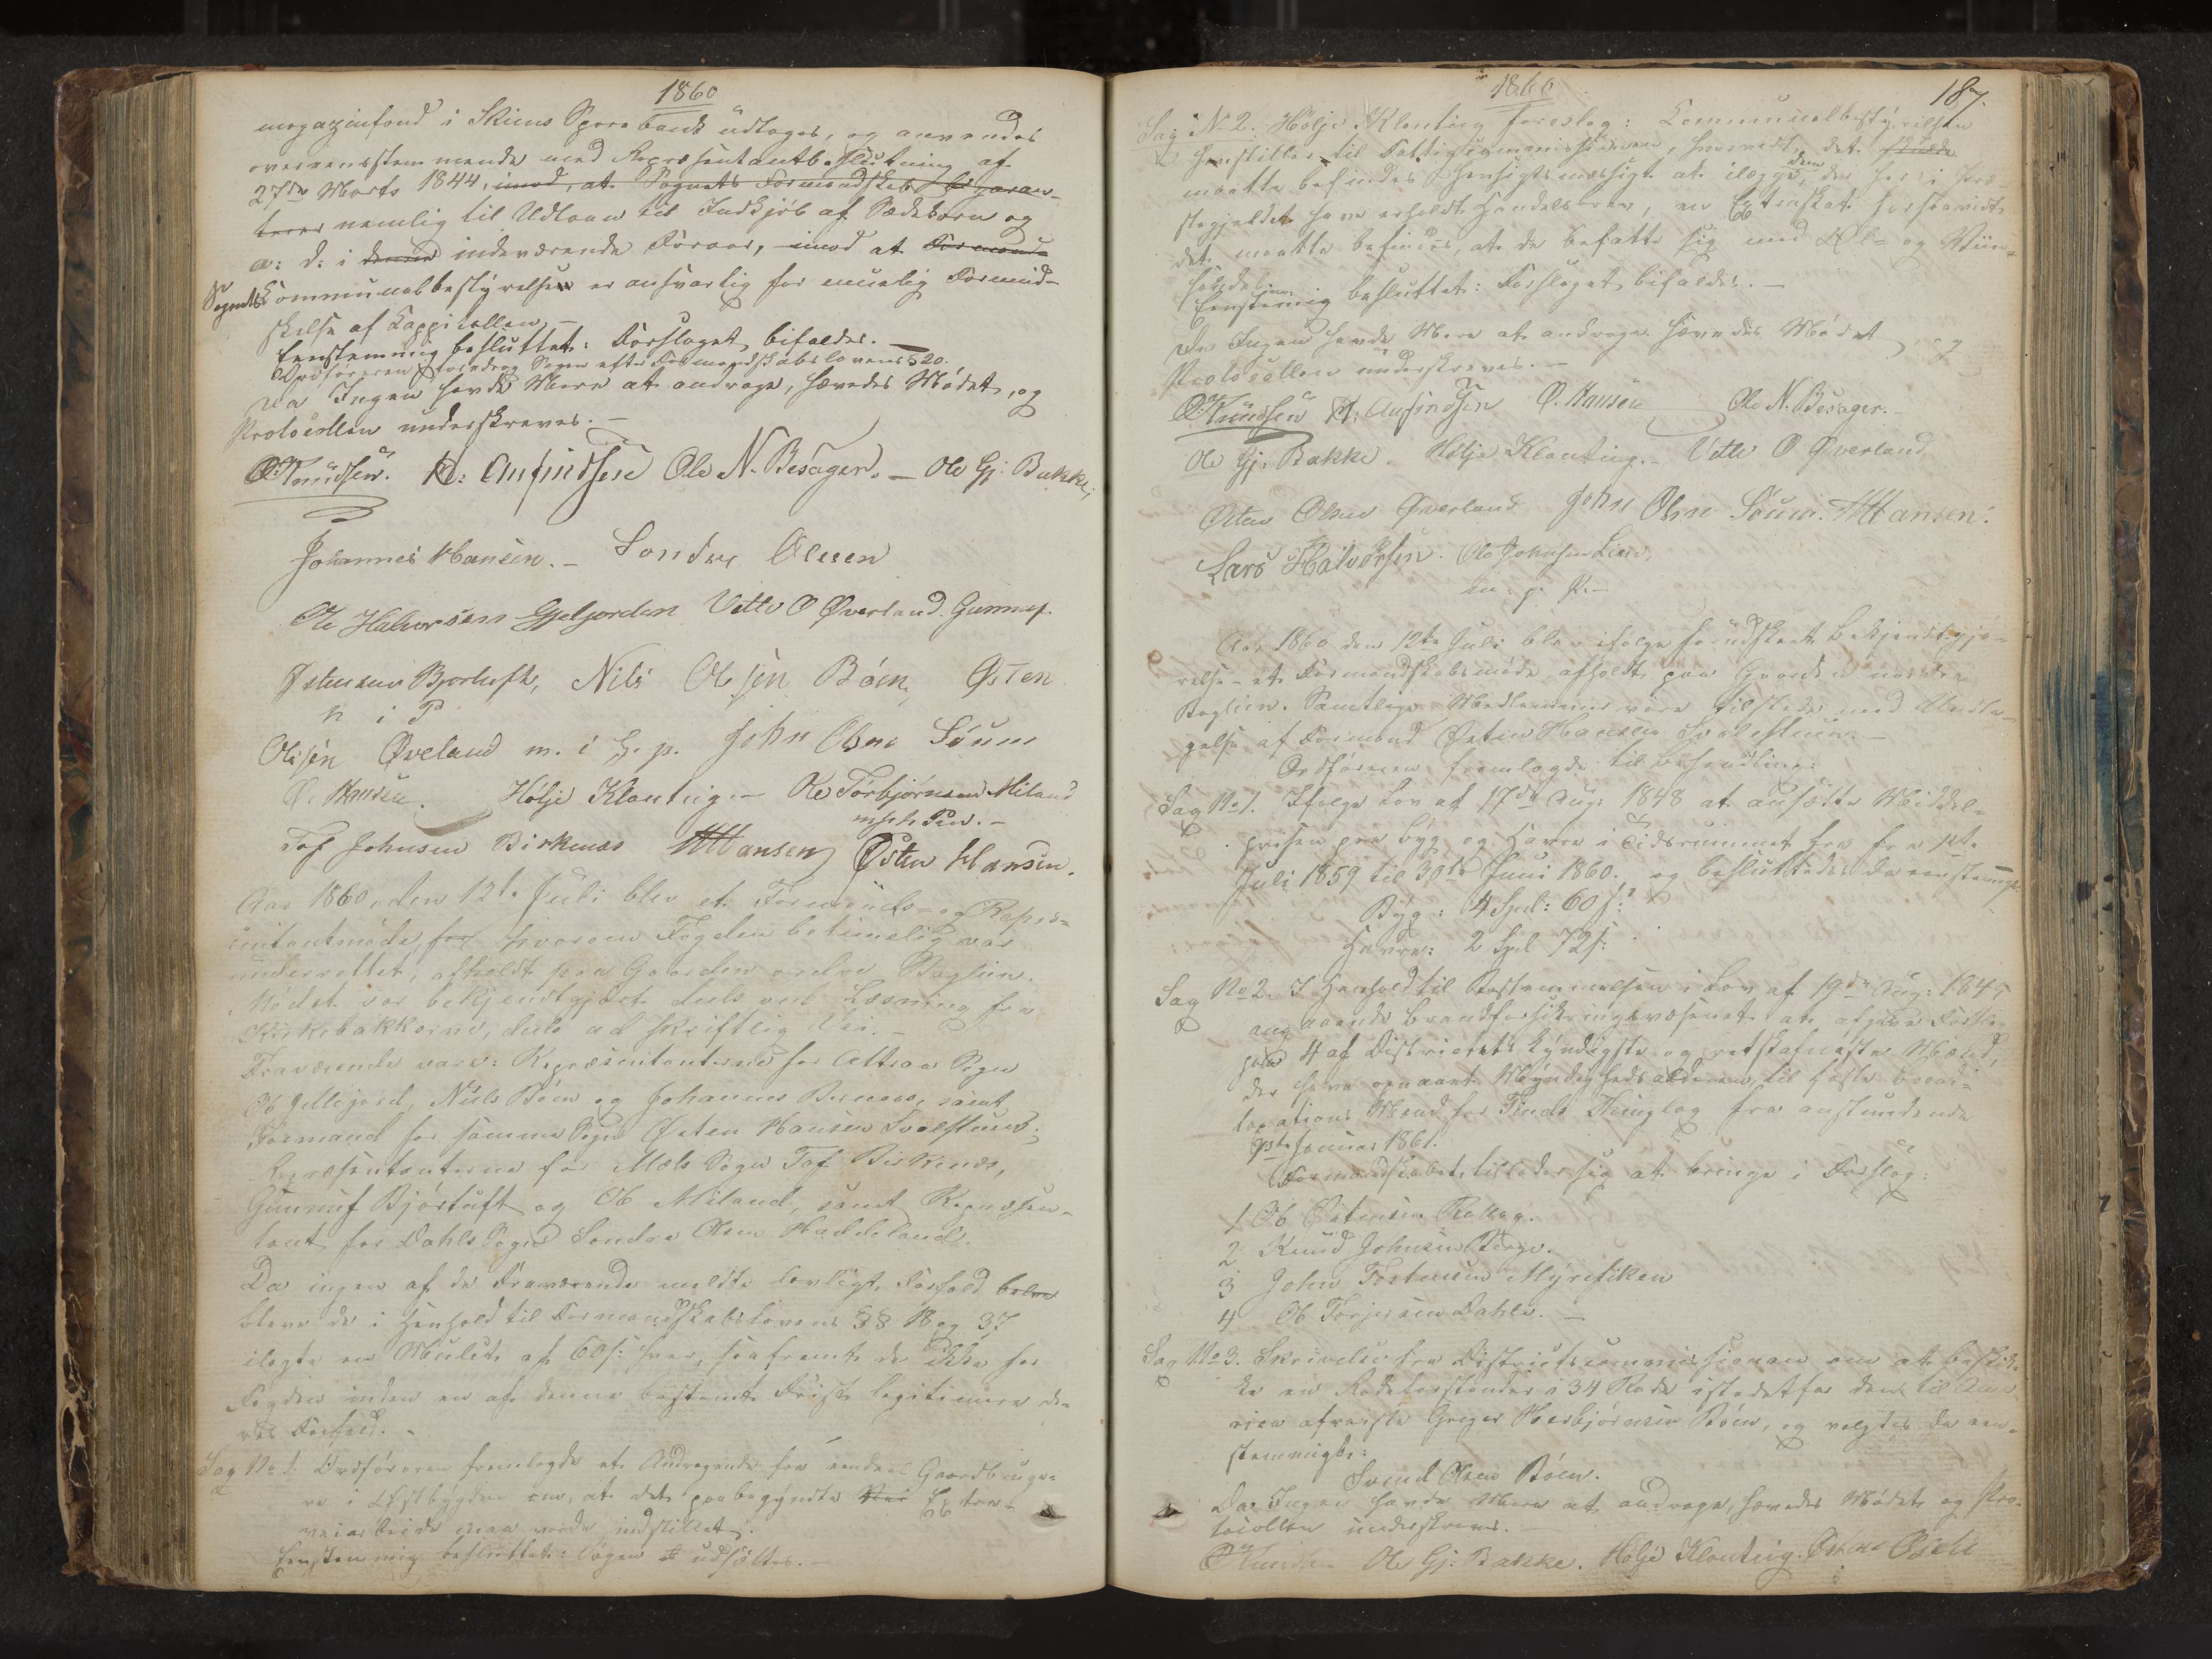 1860
magazinfond i Skiens Sparebank udtages, og anvendes
overeensstemmende med Repræsentantbeslutning af
27de Marts 1844, imod, at Sognets Formandskab garan-
terer nemlig til Udlaan til Indkjøb af Sædekorn og
a: d: i denne indeværende Foraar, imod at Formand-
Sognets Communalbestyrelse er ansvarlig for muelig Formind-
skelse af Cappitallen. –
Eenstemmig besluttet: Forslaget bifaldes. –
Ordføreren foredrog Sagen efter Formandskabslovens § 20.
Da Ingen havde Mere at andrage, hævedes Mødet, og
Protocollen underskreves. –
O. Knudsen. K: Anfindsen Ole N. Besager. – Ole Gj: Bakke,
Johannes Hansen. – Sondre Olesen
Ole Halvorsen Gjeljorden Vetle O Øverland. Gunnuf
Østensen Bjørtuft, Nils Olsen Bøen, Østen
h i P
Olsen Øveland m. i H. p. John Olsne Søum
O. Hansen. Hølje Klonteig. – Ole Torbjørnsen Miland
mph Pen. –
Tof Johnsen Birkenæs HHansen Østen Hansen.
Aar 1860, den 12te Juli blev et Formands- og Repræ-
sentantmøde, for hvorom Fogden betimelig var
underrettet, afholdt paa Gaarden nedre Baglien.
Mødet var bekjendtgjort deels ved Læsning fra
Kirkebakkerne, deels ad skriftlig Vei. –
Fraværende vare: Repræsentanterne for Attraa Sogn
Ole Gellejord, Niels Bøen og Johannes Bernaas, samt
Formand for samme Sogn Østen Hansen Svalestuen;
Repræsentanterne for Mæls Sogn Tof Birkenæs,
Gunnuf Bjørtuft og Ole Miland, samt Repræsen-
tant for Dahls Sogn Sondre Olsen Haddeland.
Da ingen af de Fraværende meldte lovligt Forfald
bleve de i Henhold til Formandskabslovens §§ 18 og 37
ilagte en Mulct af 60 s: hver, saafremt de ikke for
Fogden inden en af denne bestemt Frist legitimere de-
res Forfald. –
Sag No 1. Ordføreren fremlagde et Andragende fra eendeel Gaardbruge-
re i Østbygden om, at det paabegyndte Vei Extra-
veiarbeide maa vorde indstillet.
Eenstemmig besluttet: Sagen udsættes. –
1860
187.
Sag No 2. Hølje Klonteig foreslog: Communalbestyrelsen
henstiller til Fattigcommissionen, hvorvidt det skulde
maatte befindes hensigtsmæssigt at ilægge dem, der her i Præ-
stegjeldet have erholdt Handelsbrev, en Extraskat forsaavidt
det maatte befindes, at de befatte sig med Øl- og Viin-
handelen.
Eenstemmig besluttet: Forslaget bifaldes. –
Da Ingen havde Mere at andrage hævedes Mødet, og
Protocollen underskreves. –
O. Knudsen K: Anfindsen O. Hansen Ole N. Besager. –
Ole Gj: Bakke. Hølje Klonteig. Vetle O Øverland
Østen Olsen Øverland John Olsne Søum. HHansen.
Lars Halvorsen. Ole Johnsen Lien,
m. p. P. –
Aar 1860 den 12te Juli blev ifølge forudskeet Bekjendtgjø-
relse et Formandskabsmøde afholdt paa Gaarden nedre
Baglien. Samtlige Medlemmer vare tilstede med Undta-
gelse af Formand Østen Hansen Svalestuen. –
Ordføreren fremlagde til Behandling:
Sag No 1. Ifølge Lov af 17de Aug: 1848 at ansætte Middel-
prisen paa Byg og Havre i Tidsrummet fra 1ste
Juli 1859 til 30te Juni 1860. og besluttedes da eenstemmigt:
Byg: 4 Spd: 60 s:
Havre: 2 Spd 72 s:
Sag No 2. I Henhold til Bestemmelsen i Lov af 19de Aug: 1845
angaaende Brandforsikringsvæsenet at afgive Forslag
paa 4 af Districtets kyndigste og retskafneste Mænd,
der have opnaaet Myndighedsalderen til faste Brand-
taxations Mænd for Tinds Thinglag fra anstundende
1ste Januar 1861.
Formandskabet tillader sig at bringe i Forslag:
1 Ole Østensen Rollag.
2 Knud Johnsen Berge.
3 John Torstensen Myrefiken
4 Ole Torjersen Dahle. –
Sag No 3. Skrivelse fra Districtscommissionen om at beskik-
ke en Rodeforstander i 34 Rode istedetfor den til Ame-
rica afreiste Greger Herbjørnsen Bøen, og valgtes da een-
stemmigt:
Svend Olsen Bøen.
Da Ingen havde Mere at andrage, hævedes Mødet og Pro-
tocollen underskreves. –
O Knudsen Ole Gj: Bakke. Hølje Klonteig.